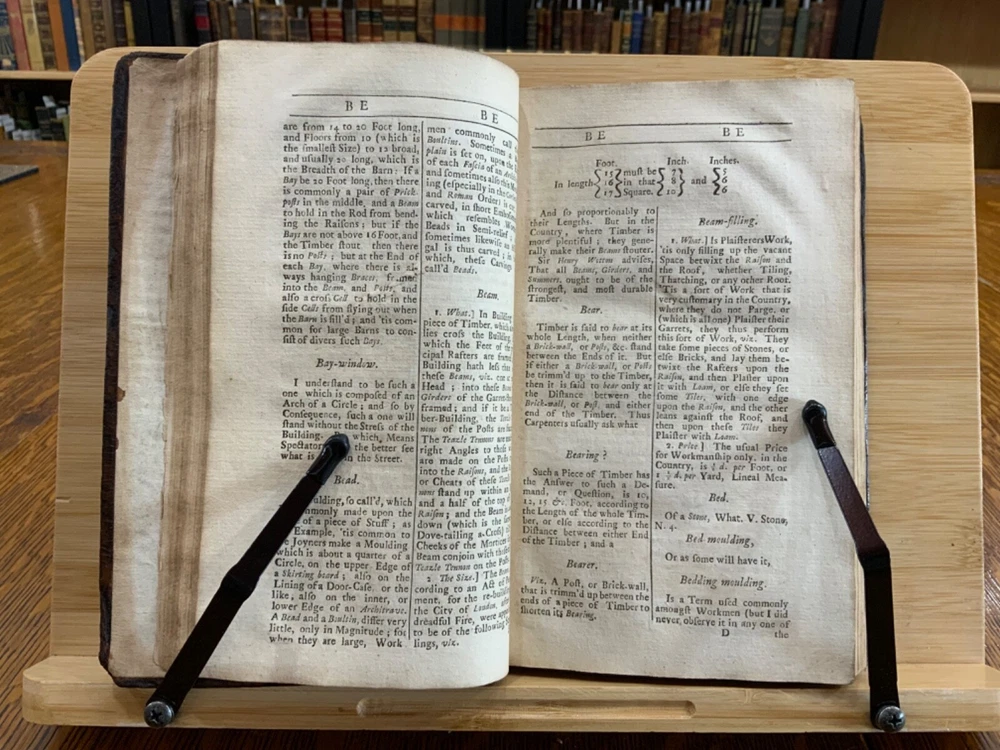 BE
BE
are from 14 to 20 Foot long,
and Floors from 10 (which is
the ſmalleſt Size) to 12 broad,
and uſually 20 long, which is
the Breadth of the Barn: If a
Bay be 20 Foot long, then there
is commonly a pair of Prick-
poſts in the middle, and a Beam
to hold in the Rod from bend-
ing the Raiſons; but if the
Bays are not above 16 Foot, and
the Timber ſtout then there
is no Poſts; but at the End of
each Bay, where there is al-
ways hanging Braces, framed
into the Beam, and Poſts, and
alſo a croſs Cell to hold in the
ſide Cells from flying out when
the Barn is fill'd; and 'tis com-
mon for large Barns to con-
ſiſt of divers ſuch Bays.
Bay-window.
I underſtand to be ſuch a
one which is compoſed of an
Arch of a Circle; and ſo by
Conſequence, ſuch a one will
ſtand without the Streſs of the
Building: which, Means
Spectators the better ſee
what is in the Street.
Bead.
ulding, ſo call'd, which
mmonly made upon the
of a piece of Stuff; as
Example, 'tis common to
Joyners make a Moulding
which is about a quarter of a
Circle, on the upper Edge of
a Skirting board; alſo on the
Lining of a Door-Caſe, or the
like, alſo on the inner, or
lower Edge of an Architrave.
A Bead and a Boultin, differ very
little, only in Magnitude; for
when they are large, Work
men commonly call
Boultins. Sometimes a
plain is ſet on, upon the
of each Faſcia of an
and ſometimes alſo
ing (eſpecially in the
and Roman Order) is
carved, in ſhort
which reſembles
Beads in Semi-relief;
ſometimes likewiſe
gal is thus carved;
which, theſe Carvings
call'd Beads.
Beam.
1. What.] In Building
piece of Timber, which
lies croſs the Building,
which the Feet of
cipal Rafters are framed
Building hath leſs
theſe Beams, viz. one at
Head; into theſe
Girders of the Garret
framed; and if it be
ber-Building, the
nons of the Poſts are
The Teazle Tennons are
right Angles to
are made on the Poſts
into the Raiſons, and
or Cheats of theſe
nons ſtand up within
and a half of the top of
Raiſon; and the Beam
down (which is the ſame
Dove-tailing a-Croſs)
Cheeks of the Mortices
Beam conjoin with
Teazle Tennon on the Poſts
2 The Size.] The
cording to an Act of
ment, for the re-building
the City of London,
dreadful Fire, were
to be of the following
lings, viz.
BE
BE
Foot. Inch. Inches.
15 must be 7 5
In length 16 in that 8 and 6
17 Square. 10 6
And ſo proportionably to
their Lengths. But in the
Country, where Timber is
more plentiful; they gene-
rally make their Beams ſtouter.
Sir Henry Wotton adviſes,
That all Beams, Girders, and
Summers, ought to be of the
ſtrongeſt, and moſt durable
Timber.
Bear.
Timber is ſaid to bear at its
whole Length, when neither
a Brick-wall, or Poſts, &c. ſtand
between the Ends of it. But
if either a Brick-wall, or Poſts
be trimm'd up to the Timber,
then it is ſaid to bear only at
the Diſtance between the
Brick-wall, or Poſt, and either
end of the Timber. Thus
Carpenters uſually ask what
Bearing?
Such a Piece of Timber has
the Anſwer to ſuch a De-
mand, or Queſtion, is 10,
12, 15 &c. Foot, according to
the Length of the whole Tim-
ber, or elſe according to the
Diſtance between either End
of the Timber; and a
Bearer.
Viz. A Poſt, or Brick-wall,
that is trimm'd up between the
ends of a piece of Timber to
ſhorten its Bearing.
Beam-filling.
1. What.] Is Plaiſterers Work,
'tis only filling up the vacant
Space betwixt the Raiſon and
the Roof, whether Tilling,
Thatching, or any other Root.
'Tis a ſort of Work that is
very cuſtomary in the Country,
where they do not Parge, or
(which is all one) Plaiſter their
Garrets, they thus perform
this ſort of Work, viz. They
take ſome pieces of Stones, or
elſe Bricks, and lay them be-
twixt the Rafters upon the
Raiſon, and then Plaiſter upon
it with Loam, or elſe they ſet
ſome Tiles, with one edge
upon the Raiſon, and the other
leans againſt the Roof, and
then upon theſe Tiles they
Plaiſter with Loam.
2. Price.] The uſual Price
for Workmanſhip only, in the
Country, is d. per Foot, or
d. per Yard, Lineal Mea-
ſure.
Bed.
Of a Stone, What. V. Stone,
N. 4.
Bed moulding,
Or as ſome will have it,
Bedding moulding.
Is a Term uſed commonly
amongſt Workmen (but I did
never obſerve it in any one of
D the